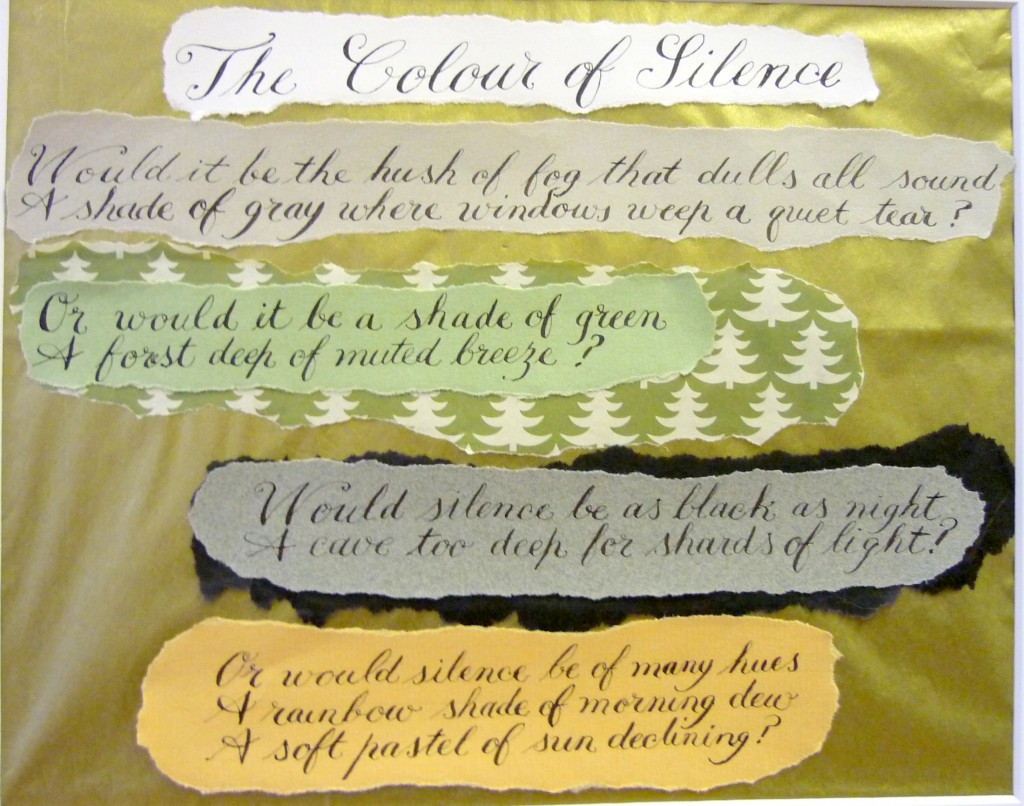 The Colour of Silence
Would it be the hush of fog that dulls all sound
A shade of gray where windows weep a quiet tear?
Or would it be a shade of green
A forst deep of muted breeze?
Would silence be as black as night
A cave too deep for shards of light?
Or would silence be of many hues
A rainbow shade of morning dew
A soft pastel of sun declining?